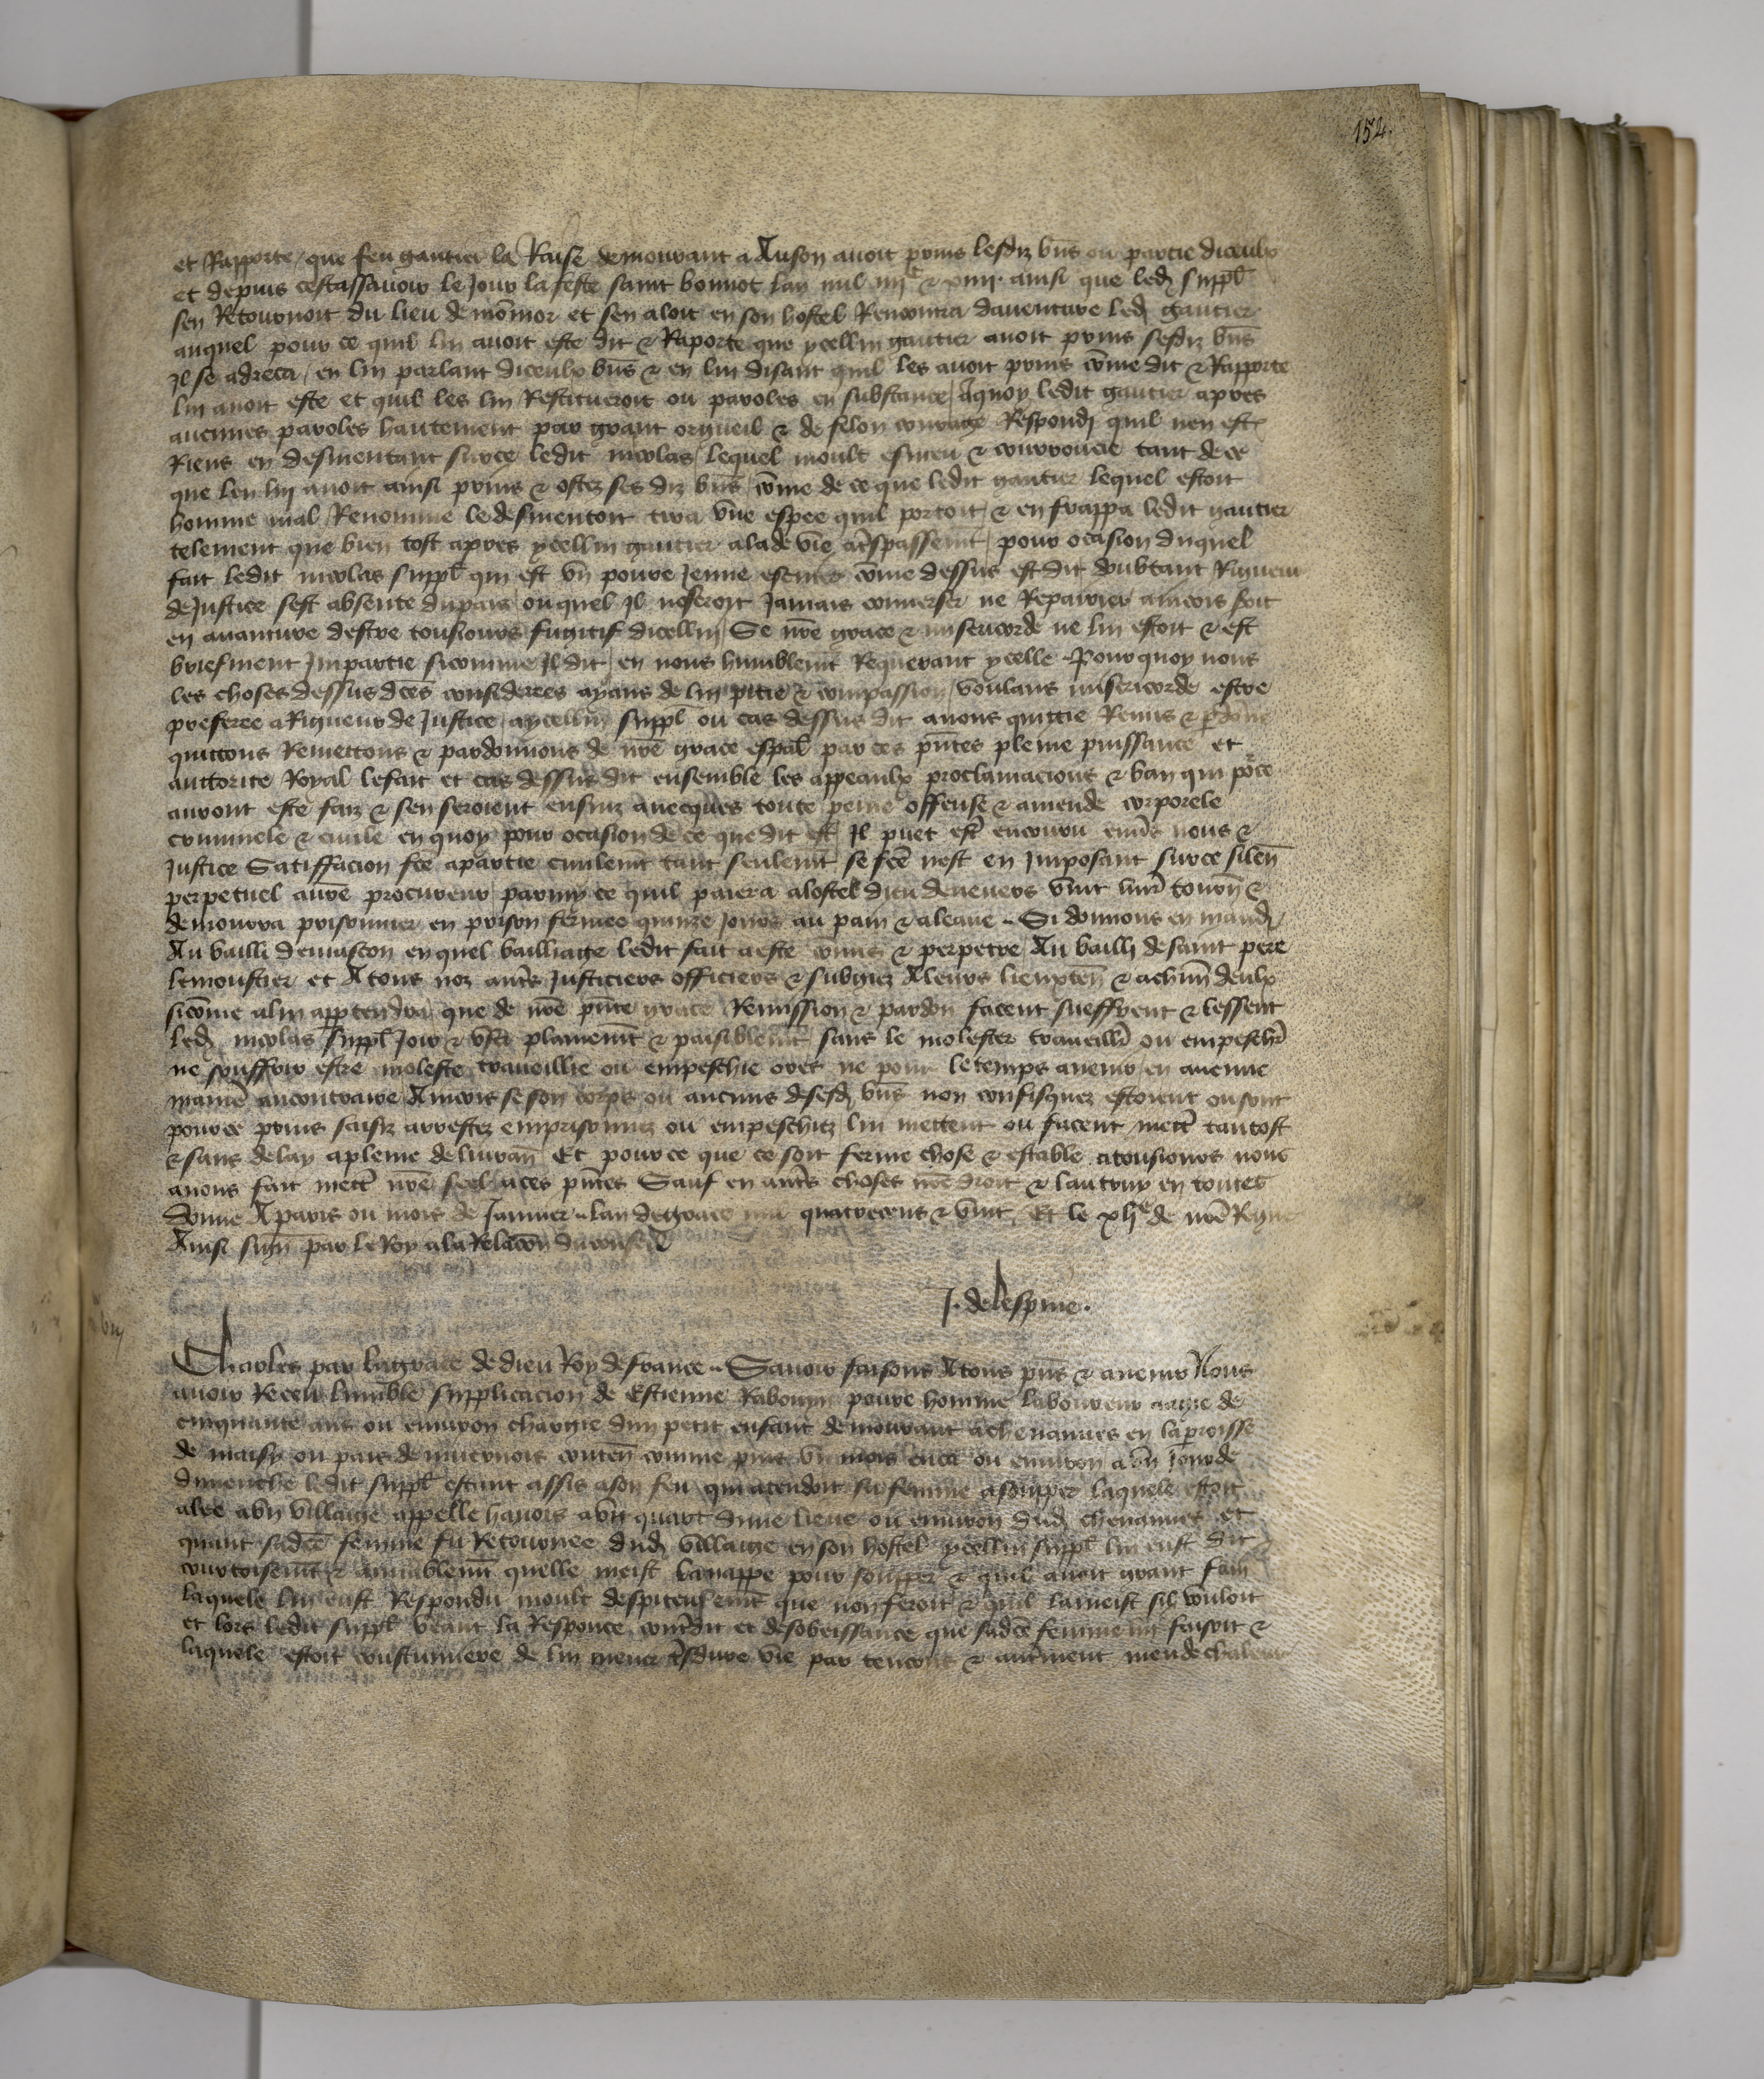 154.
et Rapporte / que feu gautier la Raise demourant a Auson auoit prins lesdiz bn̄s ou partie diceulx
et depuis cestassauoir le Jour la feste saint bonnot lan mil iiijc & xiiij. ainsi que led suppl̄
sen Retournoit du lieu de mōmor et sen aloit en son hostel Rencontra dauenture led gautier
auquel pour ce quil lui auoit este dit & Raporte que ycellui gautier auoit prins sesdiz bn̄s
Jl se adreca / en lui parlant diceulx bn̄s & en lui disant quil les auoit prins cōme dit & Rapporte
lui auoit este et quil les lui Restitueroit ou paroles en substance / Aquoy ledit gautier apres
aucunes paroles hautement par grant orgueil & de felon courage Respondi quil nen est
Riens en desmentant surce ledit nicolas / lequel moult esmeu & courroucie tant de ce
que len lui auoit ainsi prins & ostez ses diz bn̄s / cōme de ce que ledit gautier lequel estoit
homme mal Renomme le desmentoit tira vne espee quil portoit / & en frappa ledit gautier
telement que bien tost apres ycellui gautier ala de vie a trespassemt / pour ocasion duquel
fait ledit nicolas suppl̄ qui est vn poure Jeune escuier cōme dessus est dit doubtant Rigueur
de Justice sest absente du pais ouquel Jl noseroit Jamais conuerser ne Repairier aincois soit
en auanture destre tousiours fugitif dicellui / Se nr̄e grace & misericorde ne lui estoit & est
briefment Jmpartie sicomme Jl dit / en nous humblemt Requerant ycelle . Pourquoy nous
les choses dessus dc̄es considerees ayans de lui pitie & compassion / voulans misericorde estre
preferee a Rigueur de Justice / aycellui suppl̄ ou cas dessus dit auons quittie Remis & pdōne
quittons Remettons & pardonnons de nr̄e grace esp̄al par ces pn̄tes pleine puissance et
auttorite Royal le fait et cas dessus dit ensemble les appeaulx proclamacions & ban qui pour ce
auront este faiz & sen seroient ensuiz auecques toute peine offense & amende corporele
criminele & ciuile en quoy pour ocasion de ce que dit est Jl puet estr̄ encouru enuers nous &
Justice Satiffacion fc̄e apartie ciuilemt tant seulemt se fc̄e nest en Jmposant surce silen̄
perpetuel a nr̄e procureur / parmy ce quil paiera alostel dieu de neuers vint liures tourn̄ &
demourra prisonnier en prison fermee quinze Jours au pain & aleaue . Si donnons en mand
Au bailli de mascon en quel bailliage ledit fait a este cōmis & perpetre / Au bailli de saint pere
lemoustier et A tous noz autr̄s Justiciers officiers & subgiez A leurs lieuxten̄ & achūn deulx
sicōme a lui apptendra / que de nr̄e pn̄te grace Remission & pardon facent sueffrent & lessent
led nicolas suppl̄ Jouir & vser plainemt & paisiblemt sans le molester trauaill̄r ou empesch̄r
ne souffrir estre moleste trauaillie ou empeschie ores ne pour le temps auenir / en aucune
manie au contraire / Aincois se son corps ou aucuns de sesd bn̄s non confisquez estoient ou sont
pour ce prins saisiz arrestez emprisonnez ou empeschiez / lui mettent ou facent mettr̄ tantost
& sans delay apleine deliuran̄ Et pour ce que ce soit ferme chose & estable atousiours nous
auons fait mettr̄ nr̄e scel aces pn̄tes Sauf en autr̄s choses nr̄e droit & lautruy en toutes
Donne A paris ou mois de Januier . lan de grace mil quatrecens & vint / Et le xlie de nr̄e Regne
Ainsi sign̄ par le Roy ala Relacōn du conseil
J. de lespine.
Charles par la grace de dieu Roy de france .. Sauoir faisons A tous pn̄s & auenir Nous
auoir Receu lumble supplicacion de Estienne Rabouyn poure homme laboureur aagie de
cinquante ans ou enuiron chargie dun petit enfant demourant a cheuannes en la parroisse
de maisy ou pais de niuernois conten̄ comme puis vn mois enca ou enuiron a vn Jour de
dimenche ledit suppl̄ estant assis a son feu qui atendoit sa femme a soupper laquele estoit
alee a vn villaige appelle hauors a vn quart dune lieue ou enuiron dud cheuannes et
quant sadc̄e femme fu Retournee dud villaige en son hostel ycellui suppl̄ lui eust dit
courtoisemt & amiablemt quelle meist la nappe pour soupper & quil auoit grant fain
laquele lui eust Respondu moult despiteusemt que non feroit & quil la meist sil vouloit
et lors ledit suppl̄ veant la Responce contr̄dit et desobeissance que sadc̄e femme lui faisoit &
laquele estoit coustumiere de lui mener tr̄sdure vie par tencons & autrement meu de chaleur